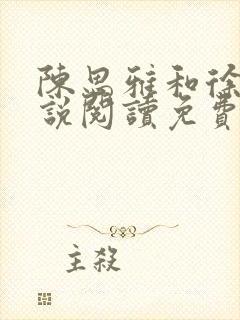 陳思雅和徐
說閱讀免費
主殺